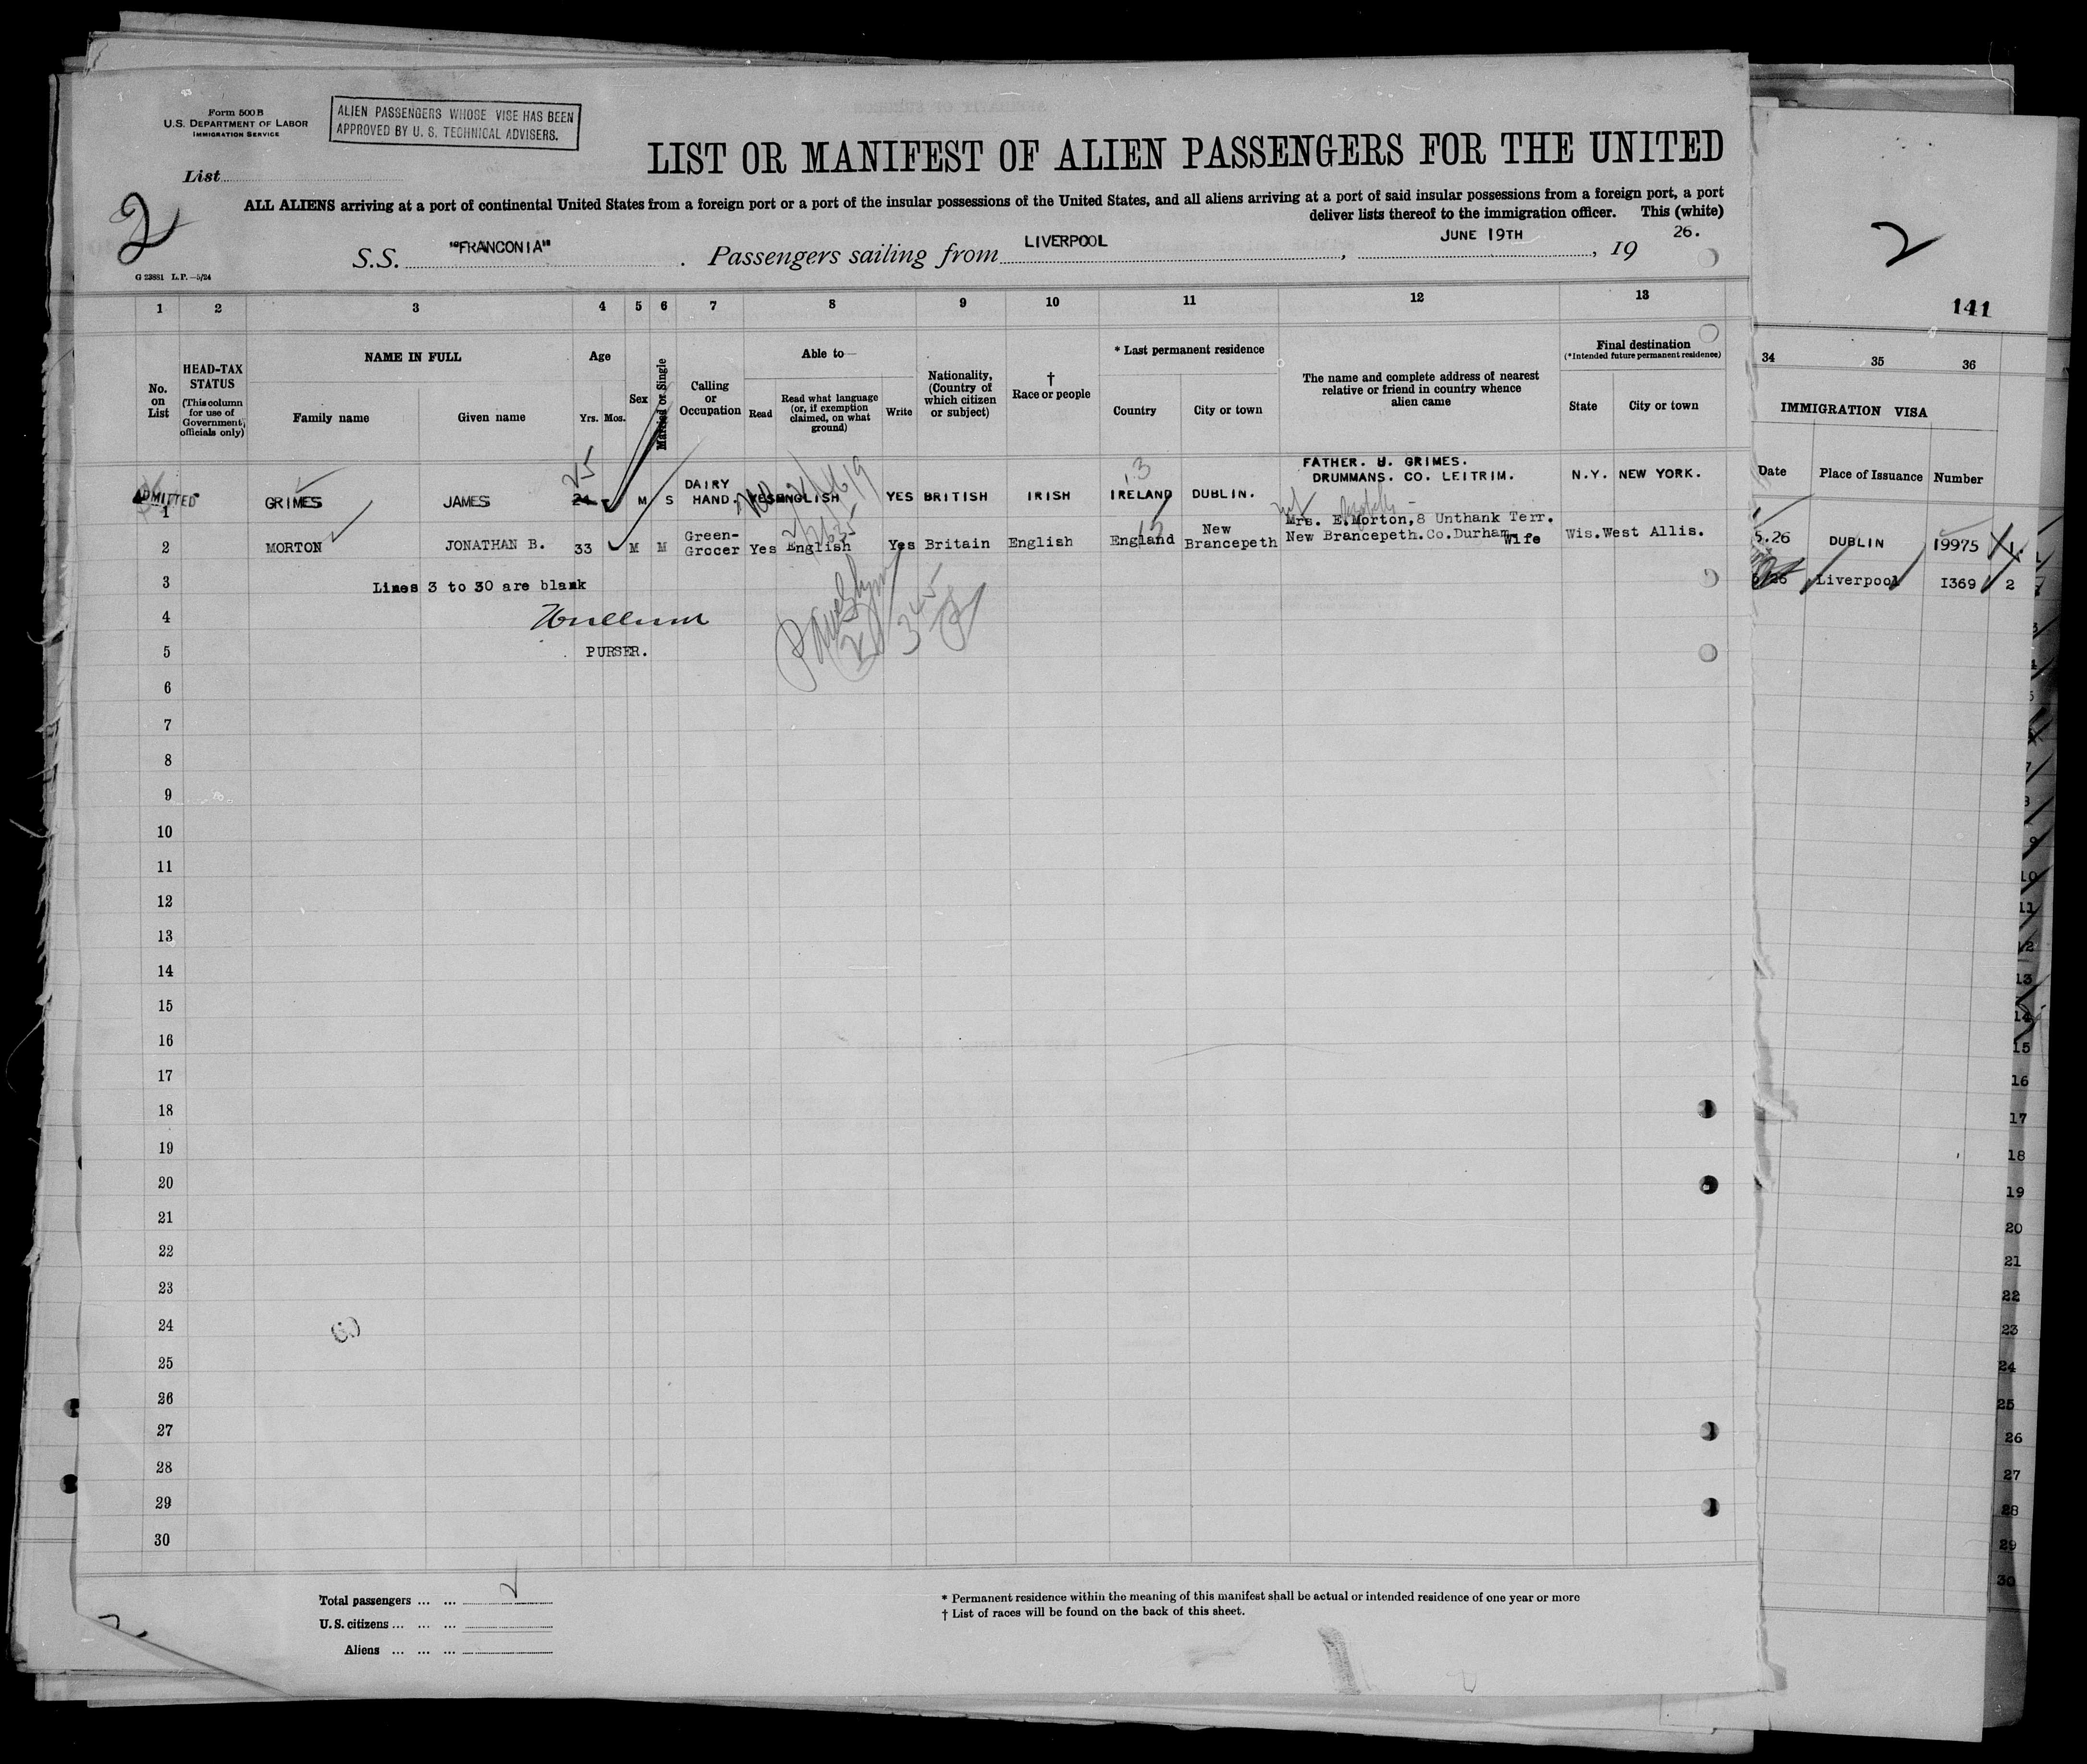 Form 500 B
U.S. DEPARTMENT OF LABOR
IMMIGRATION SERVICE
ALIEN PASSENGERS WHOSE VISE HAS BEEN
APPROVED BY U. S. TECHNICAL ADVISERS.
LIST OR MANIFEST OF ALIEN PASSENGERS FOR THE UNITED
List
2
ALL ALIENS arriving at a port of continental United States from a foreign port or a port of the insular possessions of the United States, and all aliens arriving at a port of said insular possessions from a foreign port, a port
deliver lists thereof to the immigration officer. This (white)
S.S. "FRANCONIA" . Passengers sailing from LIVERPOOL , JUNE 19TH , 19 26.
G 23881 L.P.—5/24
2
141
1 2 3 4 5 6 7 8 9 10 11 12 13
34 35 36
No. on List
HEAD-TAX STATUS
(This column for use of Government officials only)
NAME IN FULL
Family name Given name
Age
Yrs. Mos.
Sex
Married or Single
Calling or Occupation
Able to—
Read
Read what language (or, if exemption claimed, on what ground)
Write
Nationality, (Country of which citizen or subject)
† Race or people
* Last permanent residence
Country City or town
The name and complete address of nearest relative or friend in country whence alien came
Final destination
(*Intended future permanent residence)
State City or town
IMMIGRATION VISA
Date Place of Issuance Number
ADMITTED
1 GRIMES JAMES 24 25 M S DAIRY HAND. YES ENGLISH YES BRITISH IRISH IRELAND DUBLIN. FATHER. H. GRIMES. DRUMMANS. CO. LEITRIM. N.Y. NEW YORK.
5.26 DUBLIN 19975 1.
2 MORTON JONATHAN B. 33 M M Green-Grocer Yes English Yes Britain English England New Brancepeth Mrs. E.Morton,8 Unthank Terr. New Brancepeth.Co.Durham Wife Wis. West Allis.
Liverpool 1369 2
3 Lines 3 to 30 are blank
4
5 PURSER.
6
7
8
9
10
11
12
13
14
15
16
17
18
19
20
21
22
23
24
25
26
27
28
29
30
Total passengers ... ... 2
U.S. citizens ... ... ...
Aliens ... ... ...
* Permanent residence within the meaning of this manifest shall be actual or intended residence of one year or more
† List of races will be found on the back of this sheet.